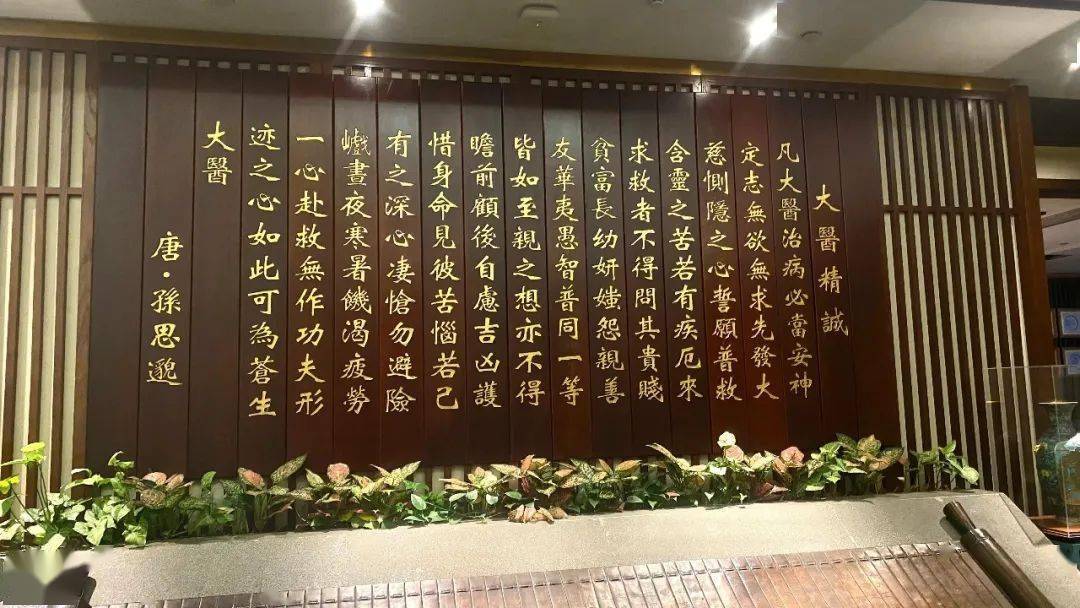 大醫精誠
凡大醫治病必當安神
定志無欲無求先發大
慈惻隱之心誓願普救
含靈之苦若有疾厄來
求救者不得問其貴賤
貧富長幼妍媸怨親善
友華夷愚智普同一等
皆如至親之想亦不得
瞻前顧後自慮吉凶護
惜身命見彼苦惱若己
有之深心凄愴勿避險
巇晝夜寒暑饑渴疲勞
一心赴救無作功夫形
迹之心如此可為蒼生
大醫
唐·孫思邈